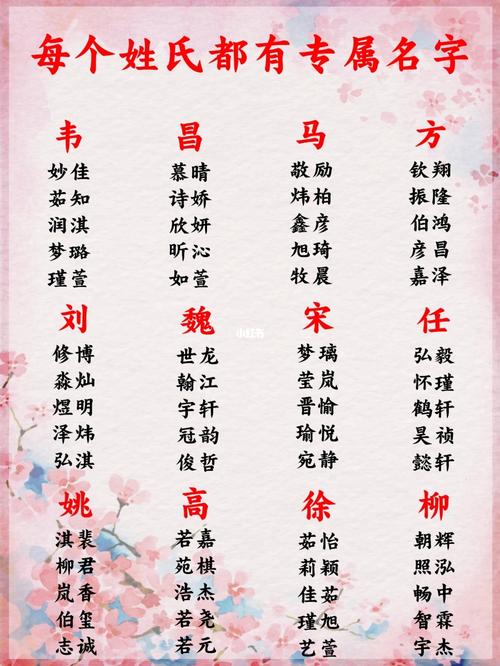 每个姓氏都有专属名字
韦 昌 马 方
妙佳 慕晴 敬励 钦翔
茹知 诗娇 炜柏 振隆
润淇 欣妍 鑫彦 伯鸿
梦璐 昕沁 旭琦 彦昌
瑾萱 如萱 牧晨 嘉泽
小红书
刘 魏 宋 任
修博 世龙 梦璃 弘毅
淼灿 翰江 莹岚 怀瑾
煜明 宇轩 晋愉 鹤轩
泽炜 冠韵 瑜悦 昊祯
弘淇 俊哲 宛静 懿轩
姚 高 徐 柳
淇裴 若嘉 茹怡 朝辉
柳君 苑棋 莉颖 照泓
岚香 浩杰 佳茹 畅中
伯玺 若尧 瑾旭 智霖
志诚 若元 艺萱 宇杰